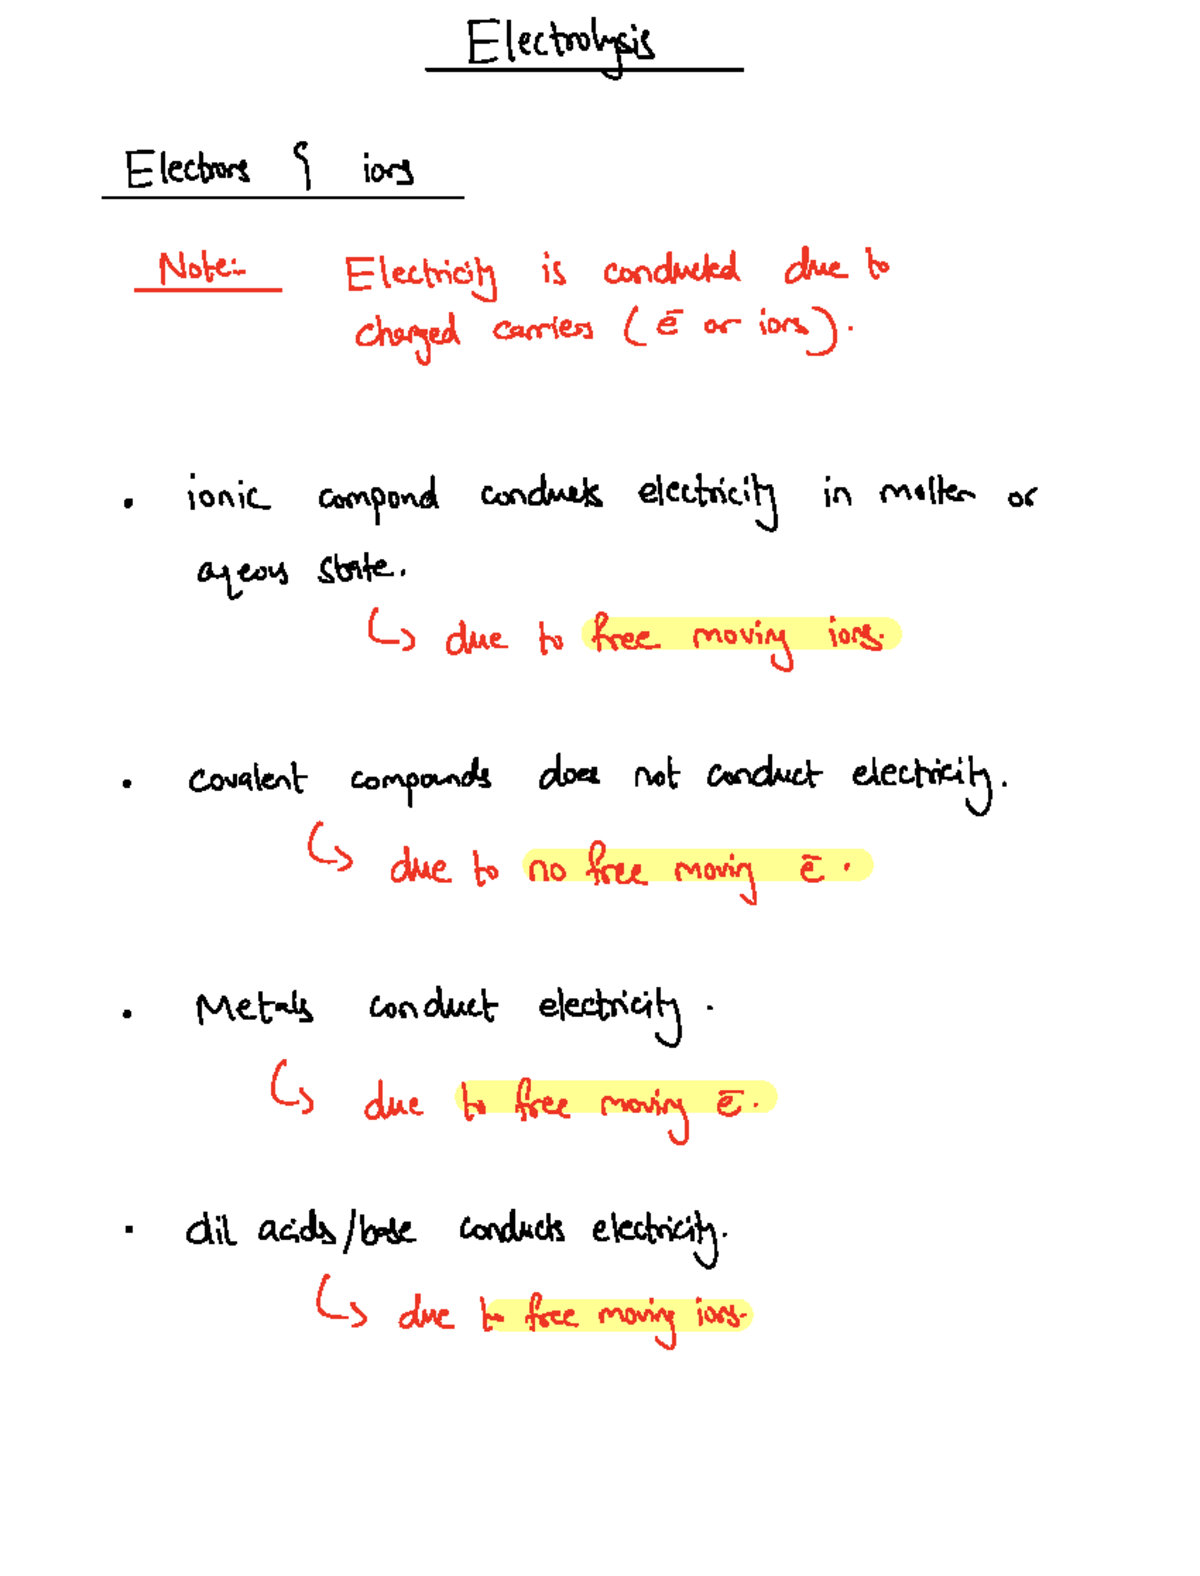 Electrolysis
Electrons & ions
Note:- Electricity is conducted due to
charged carriers (ē or ions).
• ionic compond conducts electricity in molten or
aqeous state.
↳ due to free moving ions.
• covalent compounds does not conduct electricity.
↳ due to no free moving ē.
• Metals conduct electricity.
↳ due to free moving ē.
• dil acids/base conducts electricity.
↳ due to free moving ions.